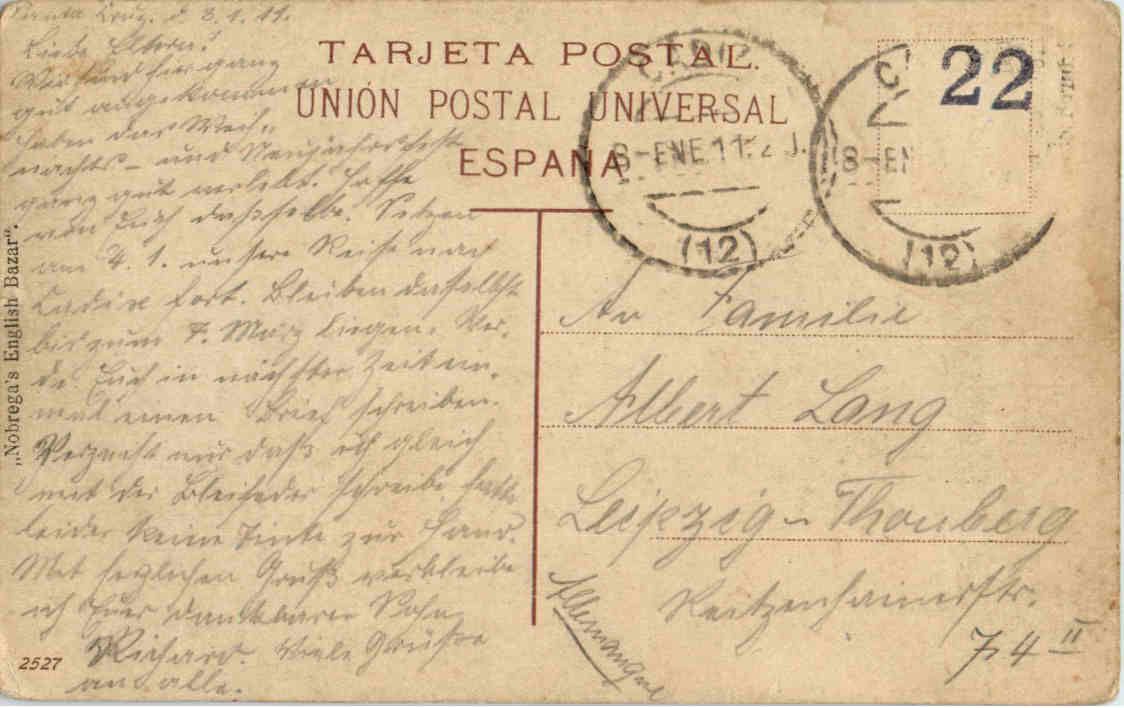 TARJETA POSTAL.
UNIÓN POSTAL UNIVERSAL
ESPAÑA
22
8-ENE 11
(12)
8-EN
(12)
Santa Cruz. d. 3.1.11.
Liebe Eltern!
Wir sind hier ganz
gut angekommen
haben das Weih-
nachts- und Neujahrsfest
ganz gut verlebt. Hoffe
von Euch dasselbe. Setzen
am 4. 1. unsere Reise nach
Cadix fort. Bleiben daselbst
bis zum 7. März liegen. Wer-
de Euch in nächster Zeit ein-
mal einen Brief schreiben.
Verzeiht nur daß ich gleich
mit der Bleifeder schreibe, hatte
leider keine Tinte zur Hand.
Mit herzlichen Gruß verbleibe
ich Euer dankbarer Sohn
Richard. Viele Grüße
an alle.
An Familie
Albert Lang
Leipzig-Thonberg
Reitzenhainerstr.
74 II
Allemagne
„Nobrega's English Bazar".
2527